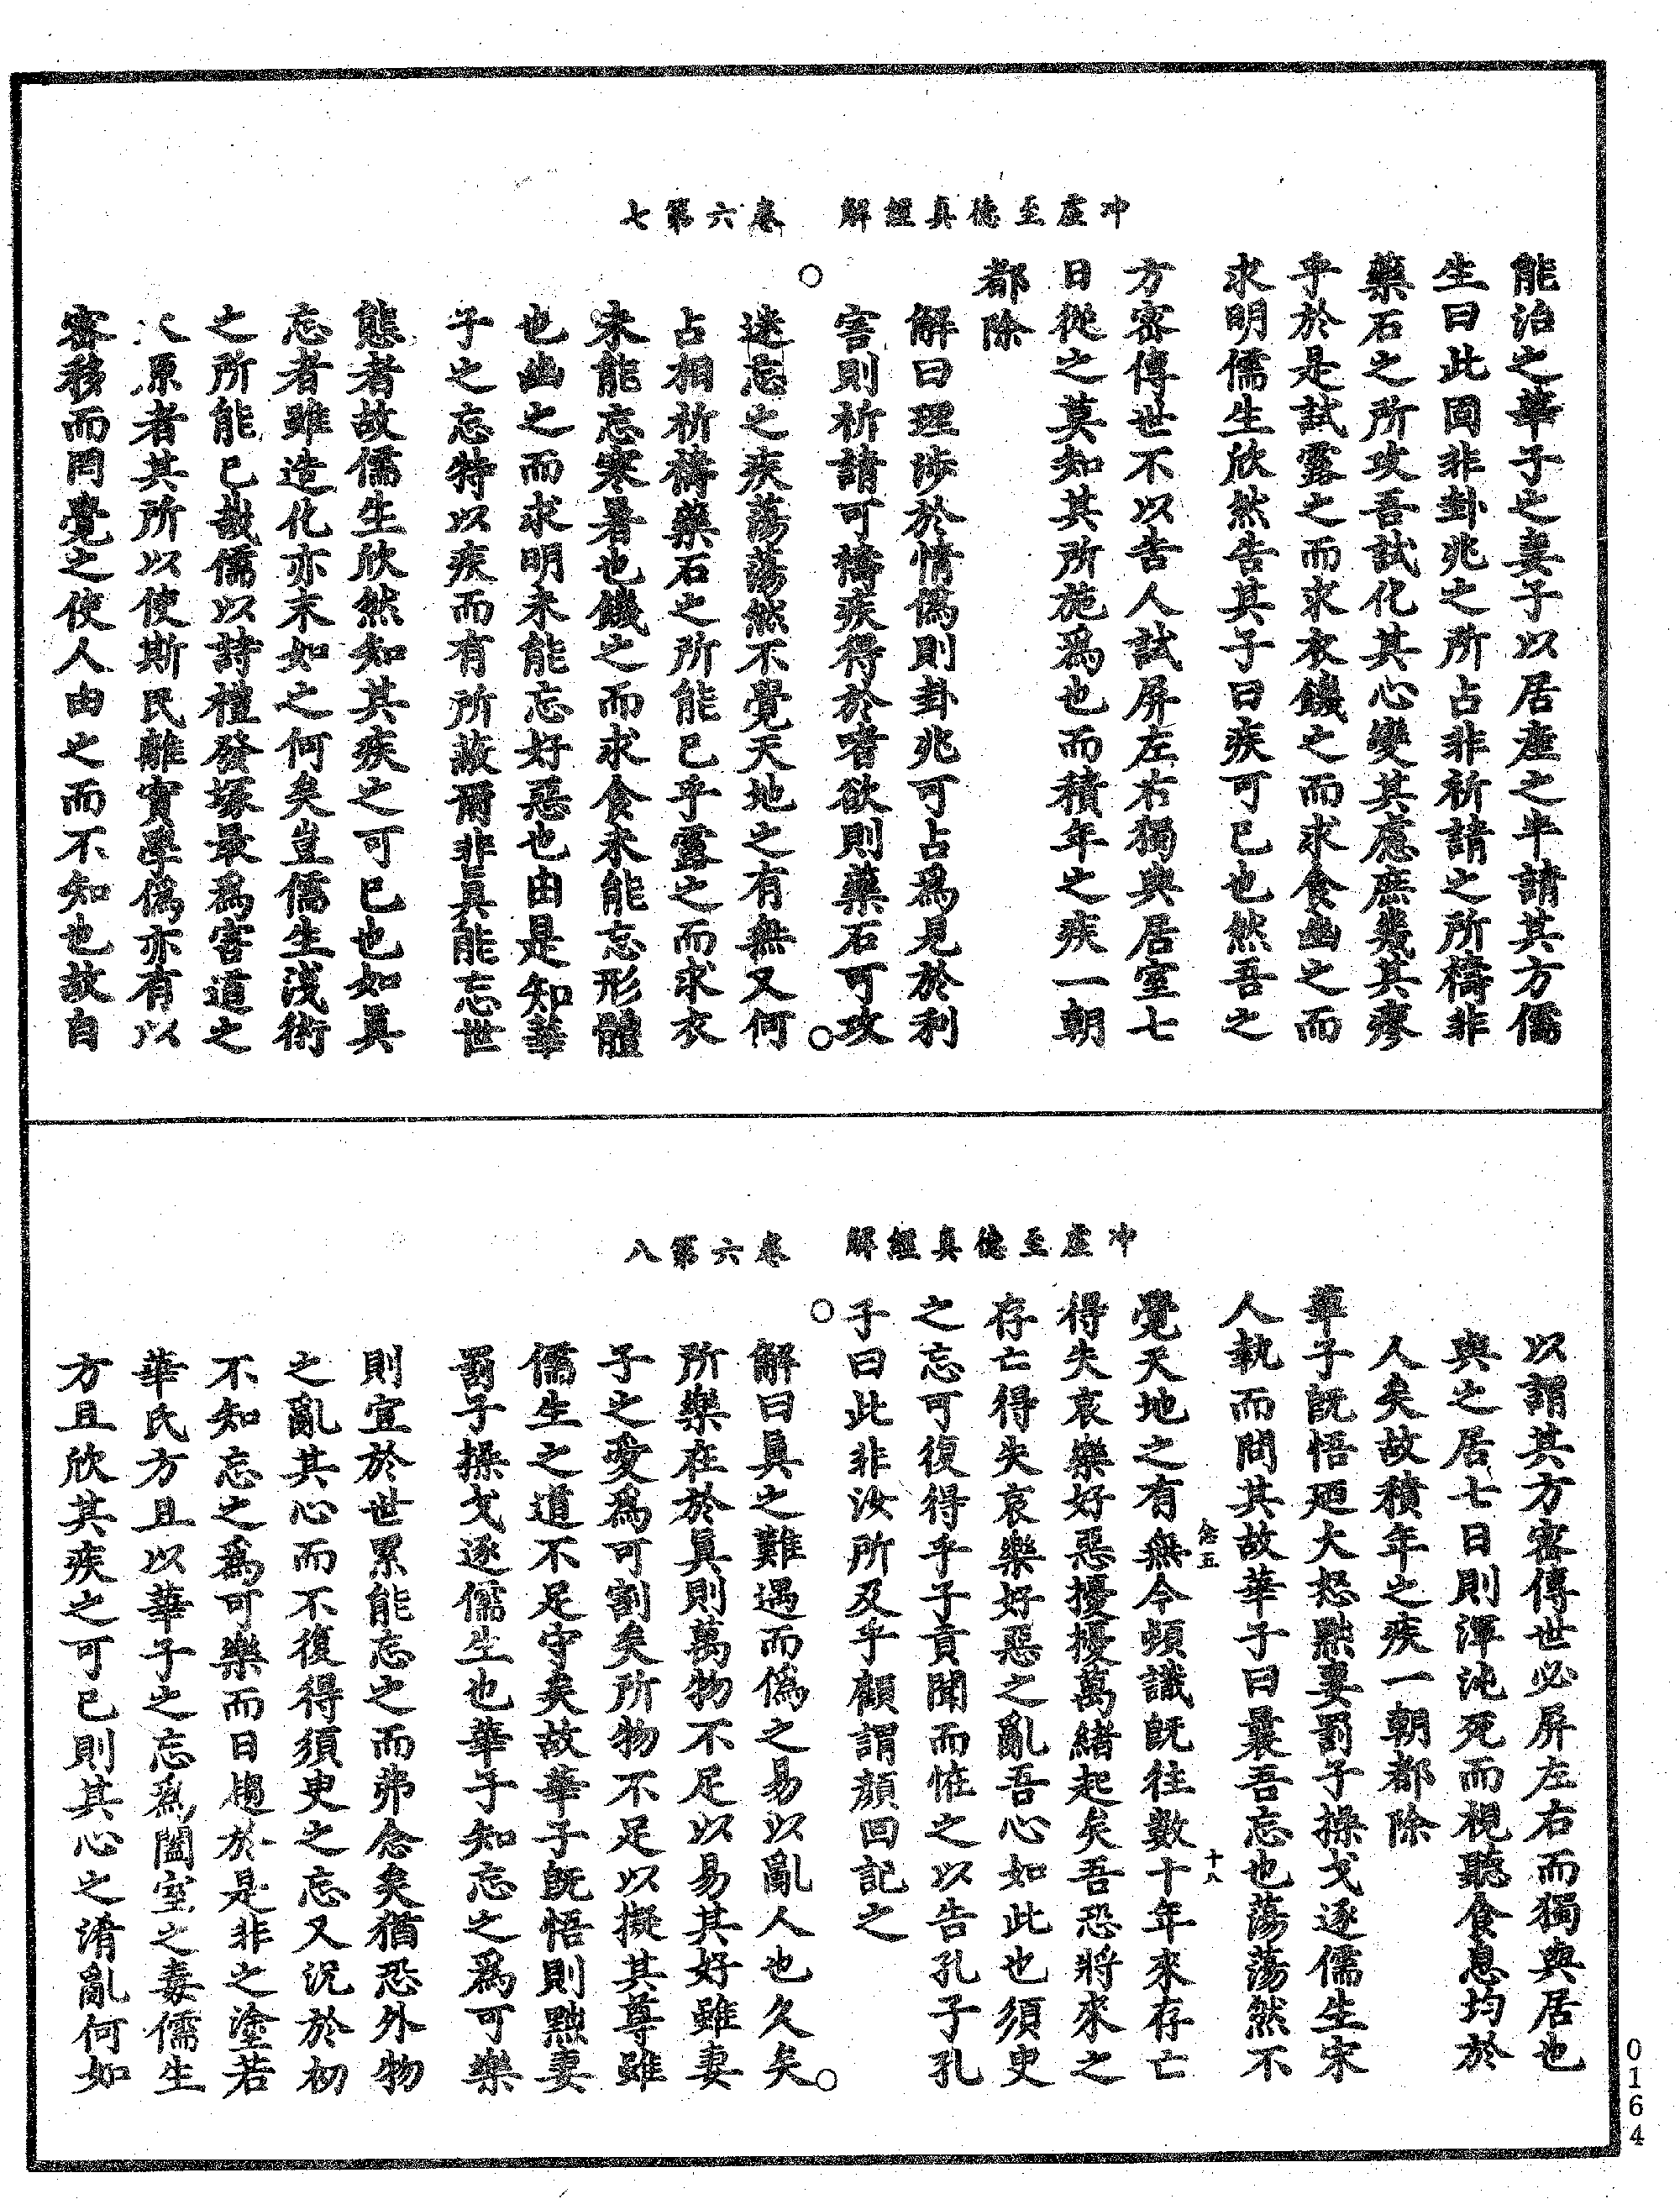 冲虛至德真經解　卷六第七
能治之華子之妻子以居產之半請其方儒
生曰此固非卦兆之所占非祈請之所禱非
藥石之所攻吾試化其心變其慮庶幾其瘳
乎於是試露之而求衣饑之而求食幽之而
求明儒生欣然告其子曰疾可已也然吾之
方密傳世不以告人試屏左右獨與居室七
日從之莫知其所施爲也而積年之疾一朝
都除
解曰理涉於情僞則卦兆可占爲見於利
害則祈請可禱疾得於嗜欲則藥石可攻
迷忘之疾蕩蕩然不覺天地之有無又何
占相祈禱藥石之所能已乎露之而求衣
未能忘寒暑也饑之而求食未能忘形體
也幽之而求明未能忘好惡也由是知華
子之忘特以疾而有所蔽爾非真能忘世
態者故儒生欣然知其疾之可已也如真
忘者雖造化亦末如之何矣豈儒生淺術
之所能已哉儒以詩禮發塚最爲害道之
大原者其所以使斯民離實學僞亦有以
密移而罔覺之使人由之而不知也故自
冲虛至德真經解　卷六第八
以謂其方密傳世必屏左右而獨與居也
與之居七日則渾沌死而視聽食息均於
人矣故積年之疾一朝都除
華子既悟廼大怒黜妻罰子操戈逐儒生宋
人執而問其故華子曰曩吾忘也蕩蕩然不
覺天地之有無今頓識既往數十年來存亡
得失哀樂好惡擾擾萬緒起矣吾恐將來之
存亡得失哀樂好惡之亂吾心如此也須臾
之忘可復得乎子貢聞而怪之以告孔子孔
子曰此非汝所及乎顧謂顏回記之
解曰真之難遇而僞之易以亂人也久矣
所樂在於真則萬物不足以易其好雖妻
子之愛爲可割矣所物不足以擬其尊雖
儒生之道不足守矣故華子既悟則黜妻
罰子操戈逐儒生也華子知忘之爲可樂
則宜於世累能忘之而弗念矣猶恐外物
之亂其心而不復得須臾之忘又況於初
不知忘之爲可樂而日趨於是非之塗若
華氏方且以華子之忘爲闔室之毒儒生
方且欣其疾之可已則其心之淆亂何如
十八
0164